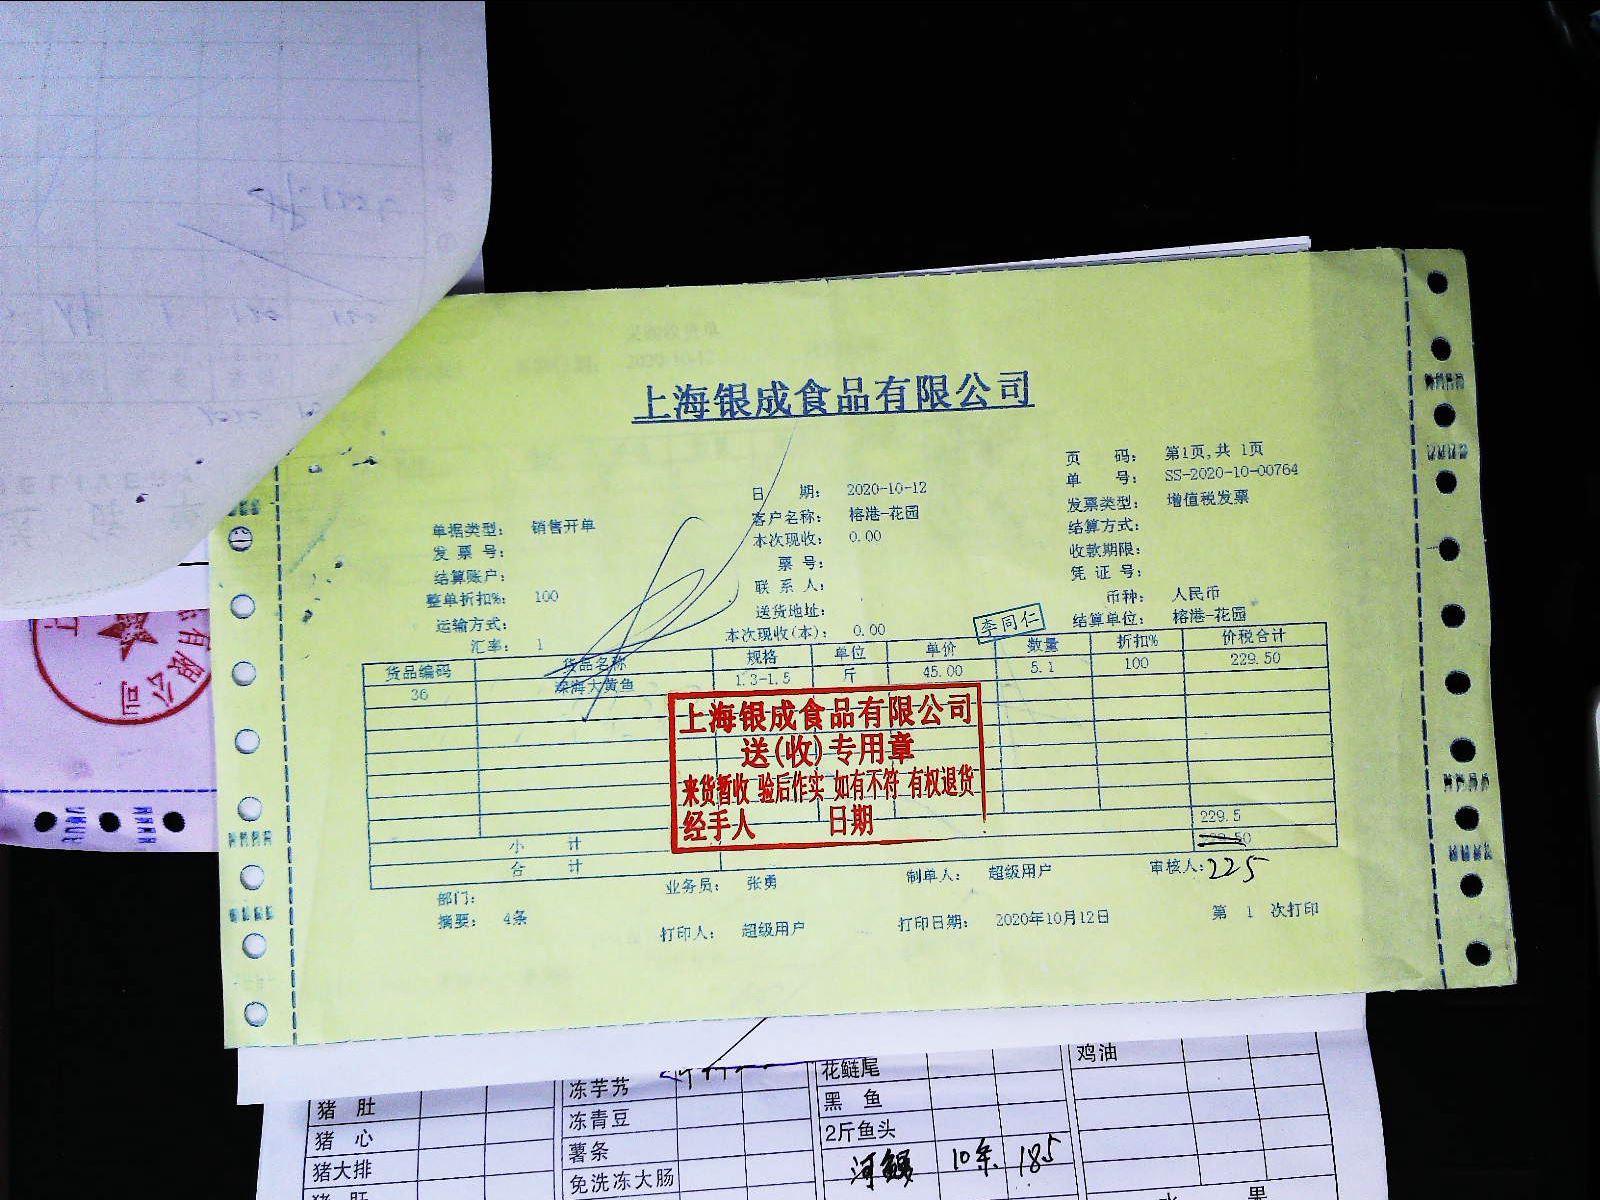 上海银成食品有限公司
页 码： 第1页,共 1页
日 期： 2020-10-12 单 号： SS-2020-10-00764
单据类型： 销售开单 客户名称： 榕港-花园 发票类型： 增值税发票
发 票 号： 本次现收： 0.00 结算方式：
结算账户： 票 号： 收款期限：
整单折扣%： 100 联 系 人： 凭 证 号：
运输方式： 送货地址： 币种： 人民币
汇率： 1 本次现收(本)： 0.00 李同仁 结算单位： 榕港-花园
货品编码 货品名称 规格 单位 单价 数量 折扣% 价税合计
36 深海大黄鱼 1.3-1.5 斤 45.00 5.1 100 229.50
上海银成食品有限公司
送(收)专用章
来货暂收 验后作实 如有不符 有权退货
经手人 日期
小 计 229.5
合 计 229.50
部门： 业务员： 张勇 制单人： 超级用户 审核人： 225
摘要： 4条 打印人： 超级用户 打印日期： 2020年10月12日 第 1 次打印
有限公司
猪 肚
猪 心
猪大排
猪 肝
冻芋艿
冻青豆
薯条
免洗冻大肠
花鲢尾
黑 鱼
2斤鱼头
河鳗 10条 185
鸡油
水 果